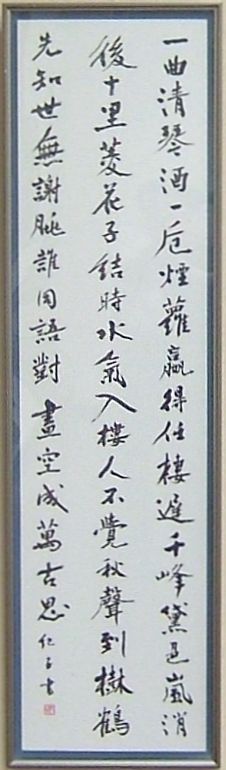 一曲清琴酒一卮煙蘿贏得任棲遲千峰黛色嵐消
後十里菱花子結時水氣入樓人不覺秋聲到樹鶴
先知世無謝朓誰同語對畫空成萬古思